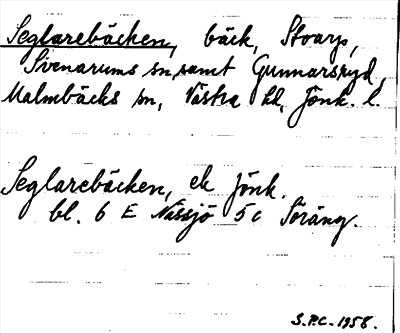 Seglarebäcken, bäck, Stoarp,
Svenarums sn, samt Gunnarsryd,
Malmbäcks sn, Västra hd, Jönk. l.
Seglarebäcken, ek Jönk.
bl. 6 E Nässjö 5c Söräng.
S.P.C. 1958.